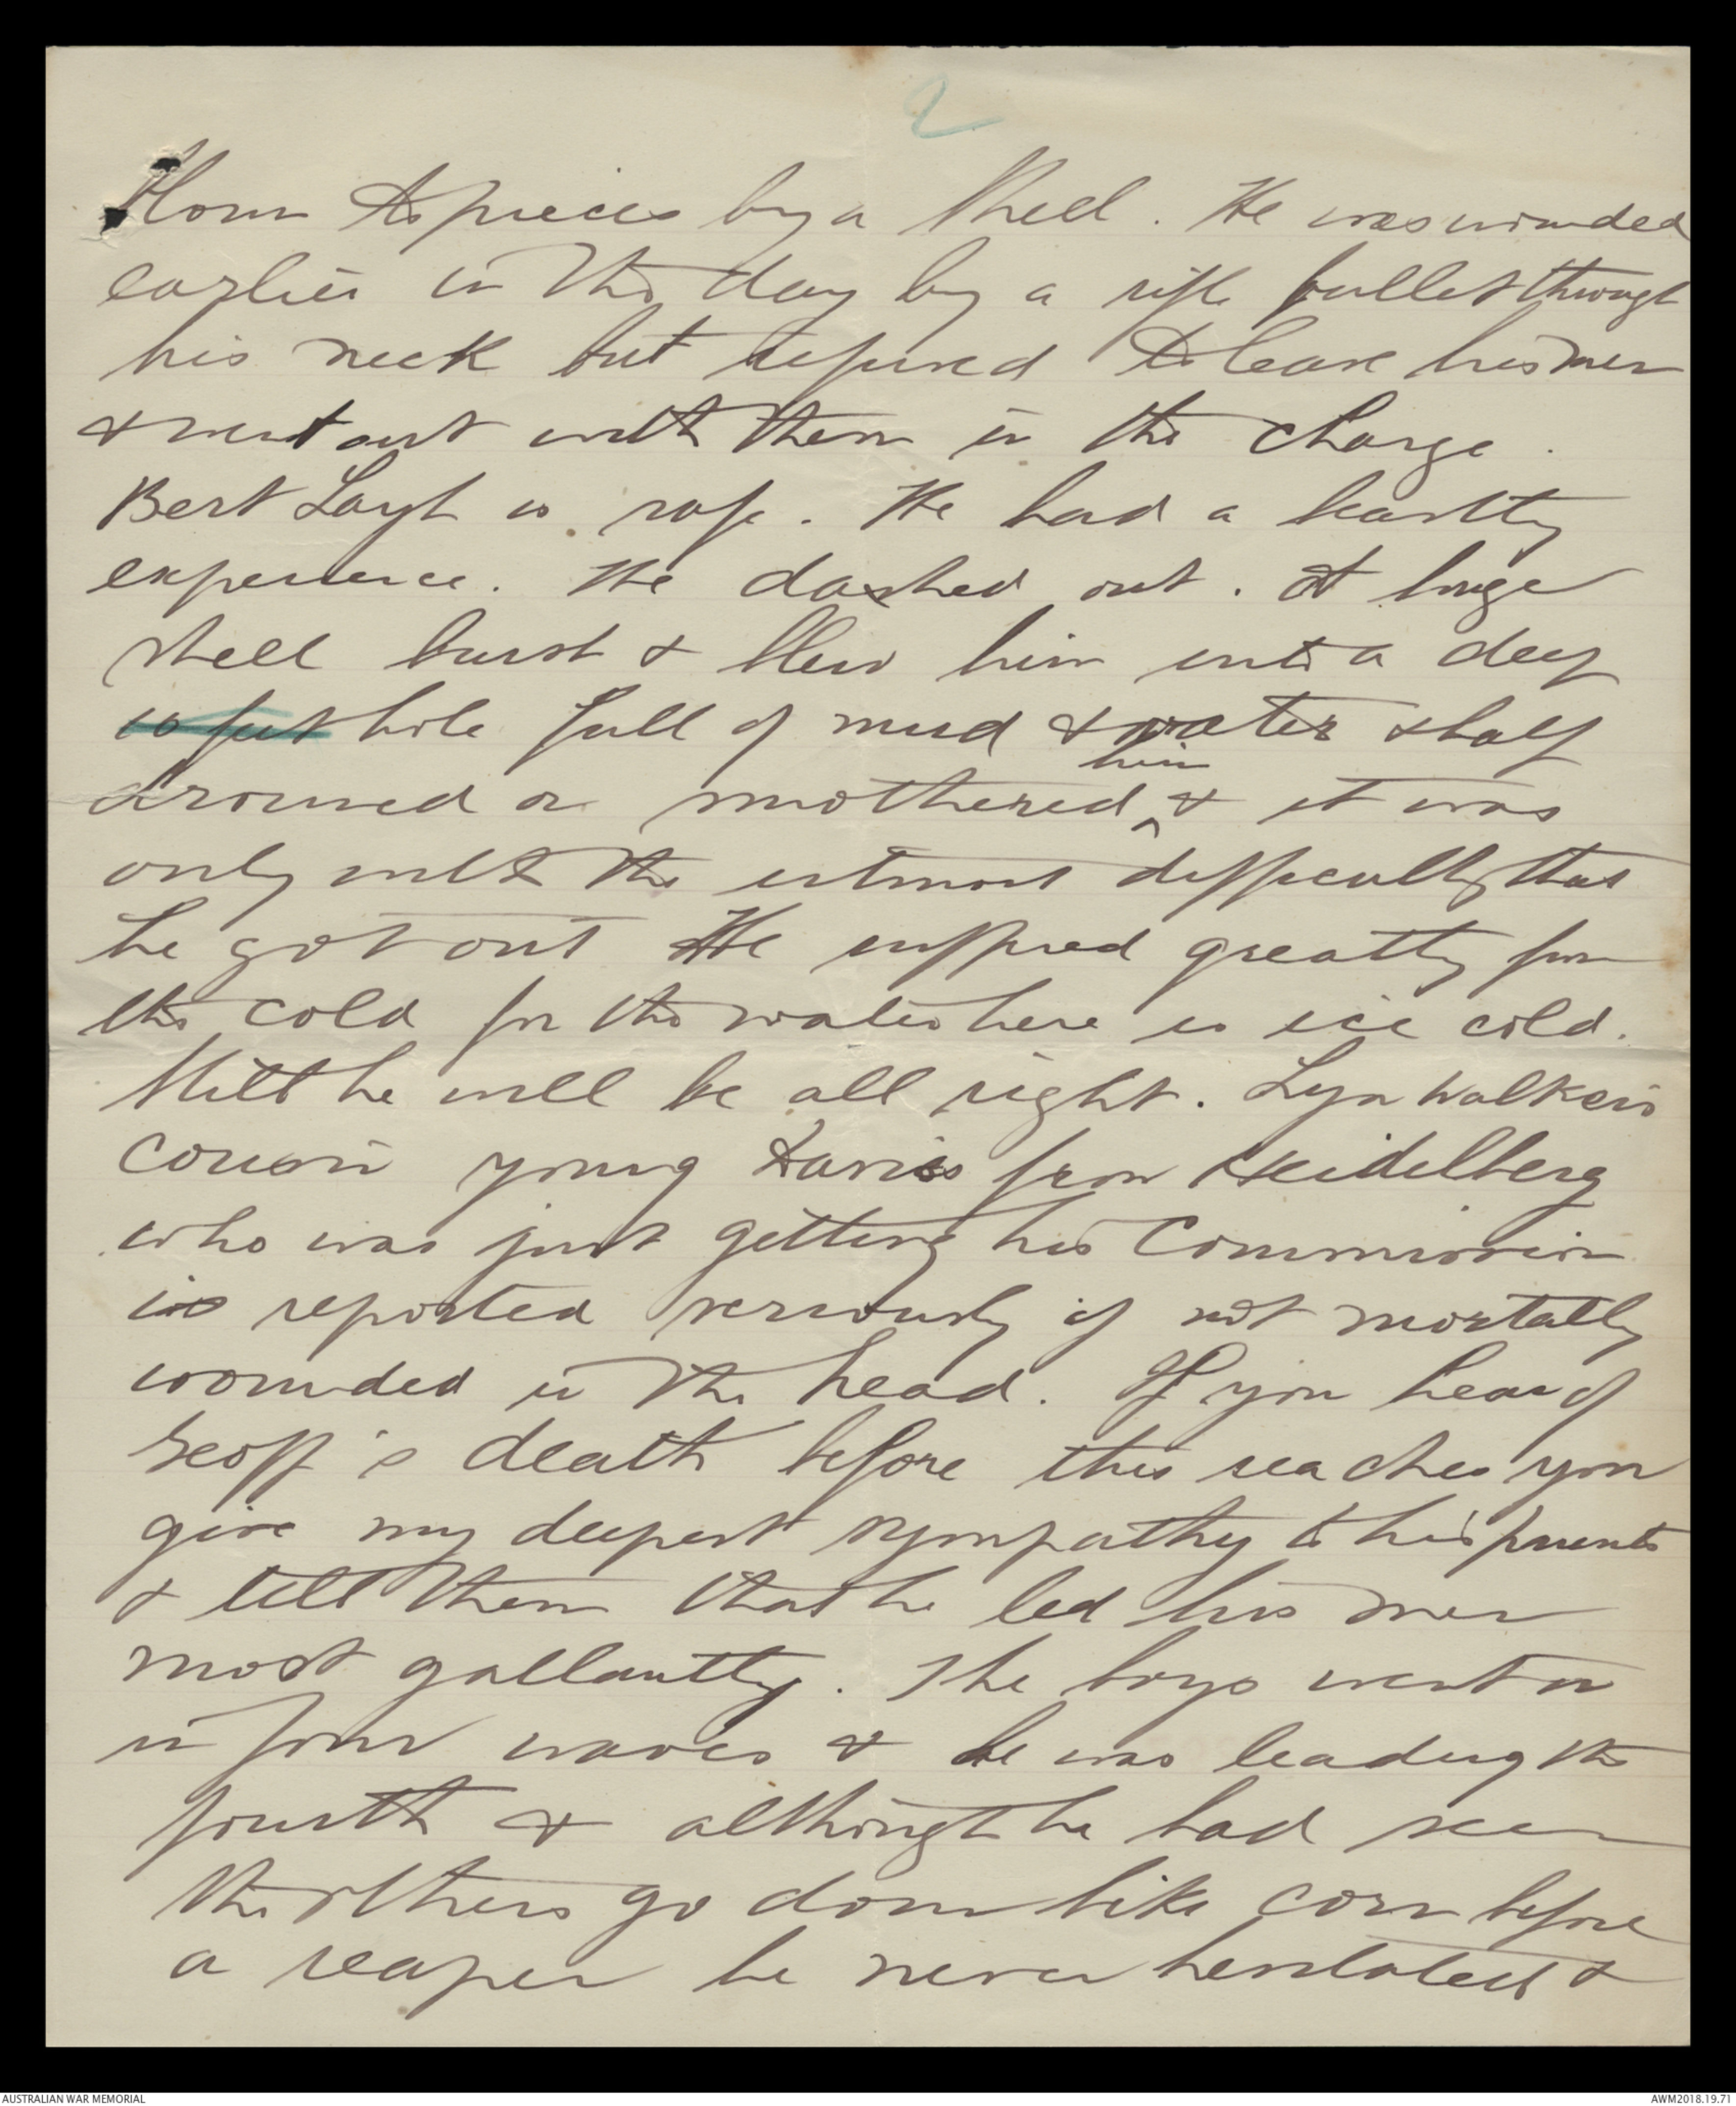 2
blown to pieces by a shell. He was wounded
earlier in the day by a rifle bullet through
his neck but refused to leave his men
& went out with them in the charge.
Bert Layh is safe. He had a beastly
experience. He dashed out. A huge
shell burst & blew him into a deep
10 feet hole full of mud & water & half
drowned or smothered him & it was
only with the utmost difficulty that
he got out He suffered greatly from
the cold for the water here is ice cold.
Still he will be all right. Lyn Walker's
cousin young Davis from Heidelberg
who was just getting his Commission
is reported seriously if not mortally
wounded in the head. If you hear of
Geoff's death before this reaches you
give my deepest sympathy to his parents
& tell them that he led his men
most gallantly. The boys went on
in four waves & he was leading the
fourth & although he had seen
the others go down like corn before
a reaper he never hesitated &
AUSTRALIAN WAR MEMORIAL
AWM2018.19.71